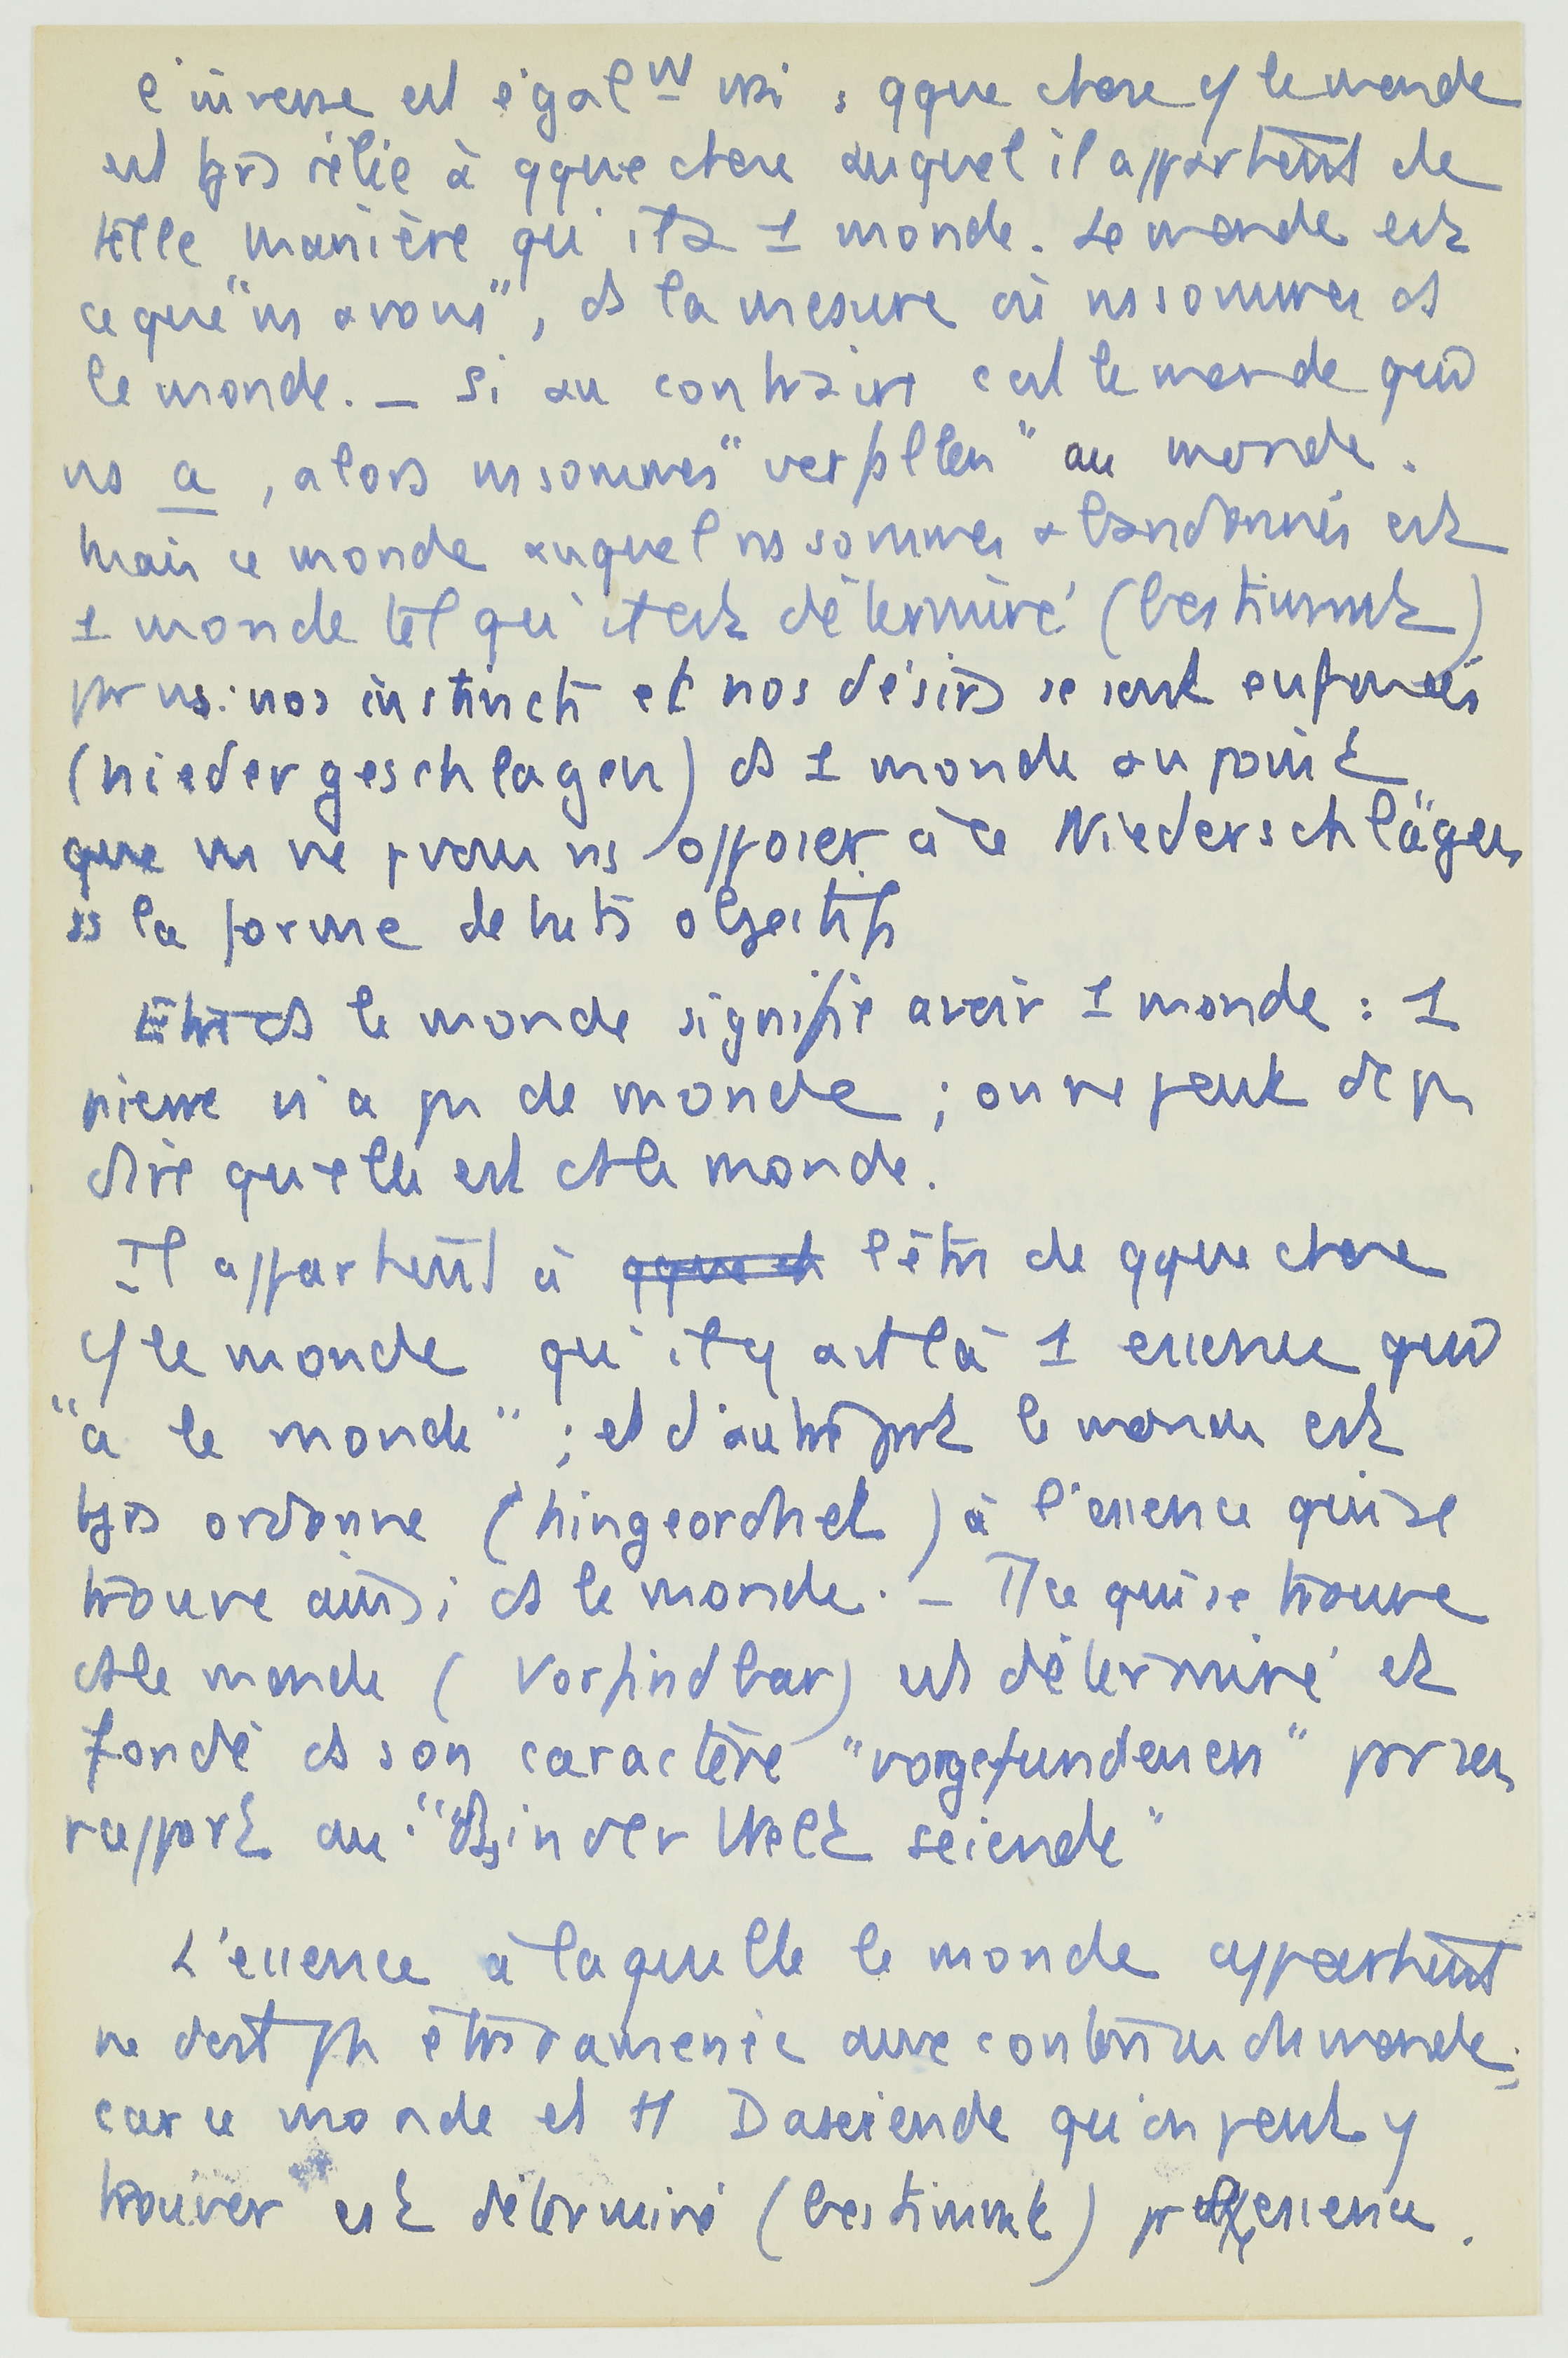 l'inverse est égalt vrai : qque chose cf le monde
est tjrs relié à qque chose auquel il appartient de
telle manière qu'il a 1 monde. Le monde est
ce que "ns avons", ds la mesure où ns sommes ds
le monde. _ Si au contraire c'est le monde qui
ns a, alors ns sommes " " au monde.
Mais ce monde auquel ns sommes abandonnés est
1 monde tel qu'il est déterminé (bestimmt)
par ns : nos instincts et nos désirs se sont enfermés
(niedergeschlagen) ds 1 monde au point
que ns ne pvons ns opposer à ce Niederschlägen
ss la forme de buts objectifs
Etre ds le monde signifie avoir 1 monde : 1
pierre n'a pas de monde ; on ne peut dc pas
dire qu'elle est ds le monde.
Il appartient à qque ch l'être de qque chose
cf le monde qu'il y ait là 1 essence qui
"a le monde" ; et d'autre part le monde est
tjrs ordonné (hingeordnet) à l'essence qui se
trouve ainsi ds le monde. _ Tt ce qui se trouve
ds le monde (Vorfindbar) est déterminé et
fondé ds son caractère "vorgefundenen" par son
rapport au : " in der Welt seiende"
L'essence à laquelle le monde appartient
ne doit pas être ramenée aux contenu du monde ;
car ce monde et tt Daseiende qu'on peut y
trouver est déterminé (bestimmt) par essence.